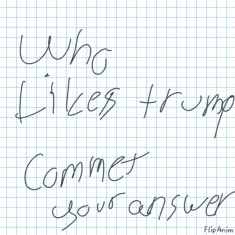 Who
Likes trump
Commet
your answer
FlipAnim